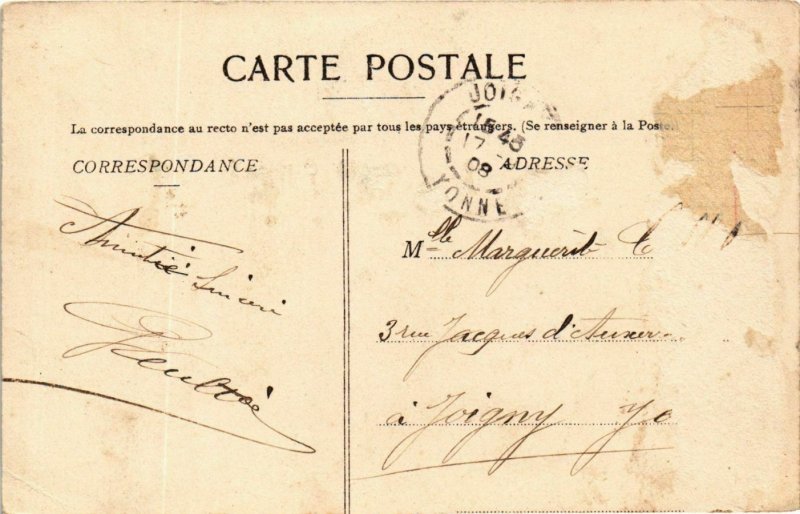 CARTE POSTALE
JOIGNY
15 45
17
08
YONNE
La correspondance au recto n'est pas acceptée par tous les pays étrangers. (Se renseigner à la Poste)
CORRESPONDANCE
ADRESSE
Amitié Sincère
Mlle Marguerite C
3 rue Jacques d'Auxer
à Joigny Yo